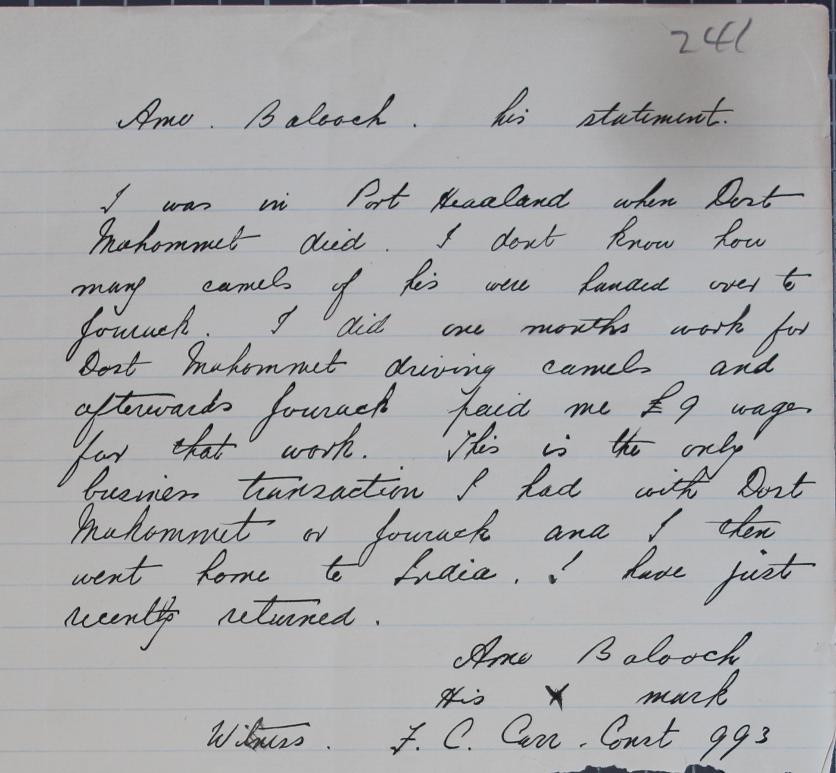 241
Amo. Balooch. his statement.
I was in Port Headland when Dost
Mahommet died. I dont know how
many camels of his were handed over to
Jouruck. I did one months work for
Dost Mahommet driving camels and
afterwards Jouruck paid me £9 wages
for that work. This is the only
business transaction I had with Dost
Mahommet or Jouruck and I then
went home to India. I have just
recently returned.
Amo Balooch
His X mark
Witness. F. C. Carr. Const 993